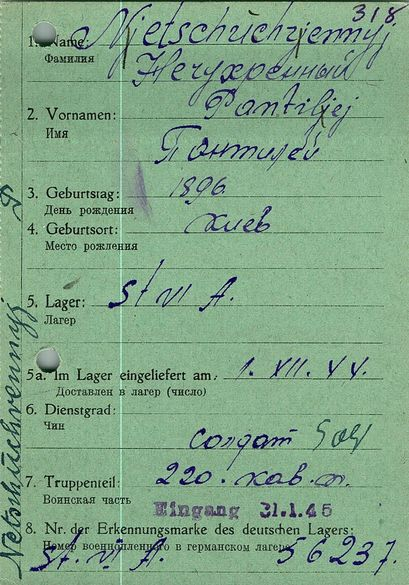 318.
1. Name: Njetschuchrjennyj
Фамилия Нечухренный
2. Vornamen: Pantiljej
Имя Пантилей
3. Geburtstag: 1896
День рождения
4. Geburtsort: Киев
Место рождения
5. Lager: St VI A.
Лагер
5a. Im Lager eingeliefert am: 1. XII. 44.
Доставлен в лагер (число)
6. Dienstgrad:
Чин
солдат Sol
7. Truppenteil: 220. кав. п.
Воинская часть
Eingang 31.1.45
8. Nr. der Erkennungsmarke des deutschen Lagers:
Номер военнопленного в германском лагере
St. VI A. 56237.
Netschuchrennyj